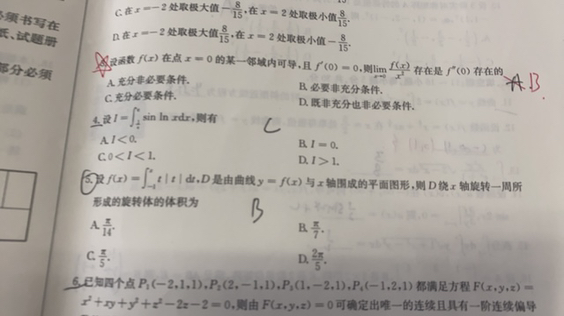 必须书写在
纸、试题册
部分必须
C.在x=-2处取极大值-8/15,在x=2处取极小值8/15.
D.在x=-2处取极大值8/15,在x=2处取极小值-8/15.
设函数f(x)在点x=0的某一邻域内可导,且f'(0)=0,则lim f(x)/x²存在是f''(0)存在的
A.充分非必要条件.
B.必要非充分条件.
C.充分必要条件.
D.既非充分也非必要条件.
A B
4.设I=∫ sin ln xdx,则有
C
A.I<0.
B.I=0.
C.0<I<1.
D.I>1.
5.设f(x)=∫₋₁ˣ t|t|dt,D是由曲线y=f(x)与x轴围成的平面图形,则D绕x轴旋转一周所
形成的旋转体的体积为
B
A.π/14.
B.π/7.
C.π/5.
D.2π/5.
6.已知四个点P₁(-2,1,1),P₂(2,-1,1),P₃(1,-2,1),P₄(-1,2,1)都满足方程F(x,y,z)=
x²+xy+y²+z²-2z-2=0,则由F(x,y,z)=0可确定出唯一的连续且具有一阶连续偏导